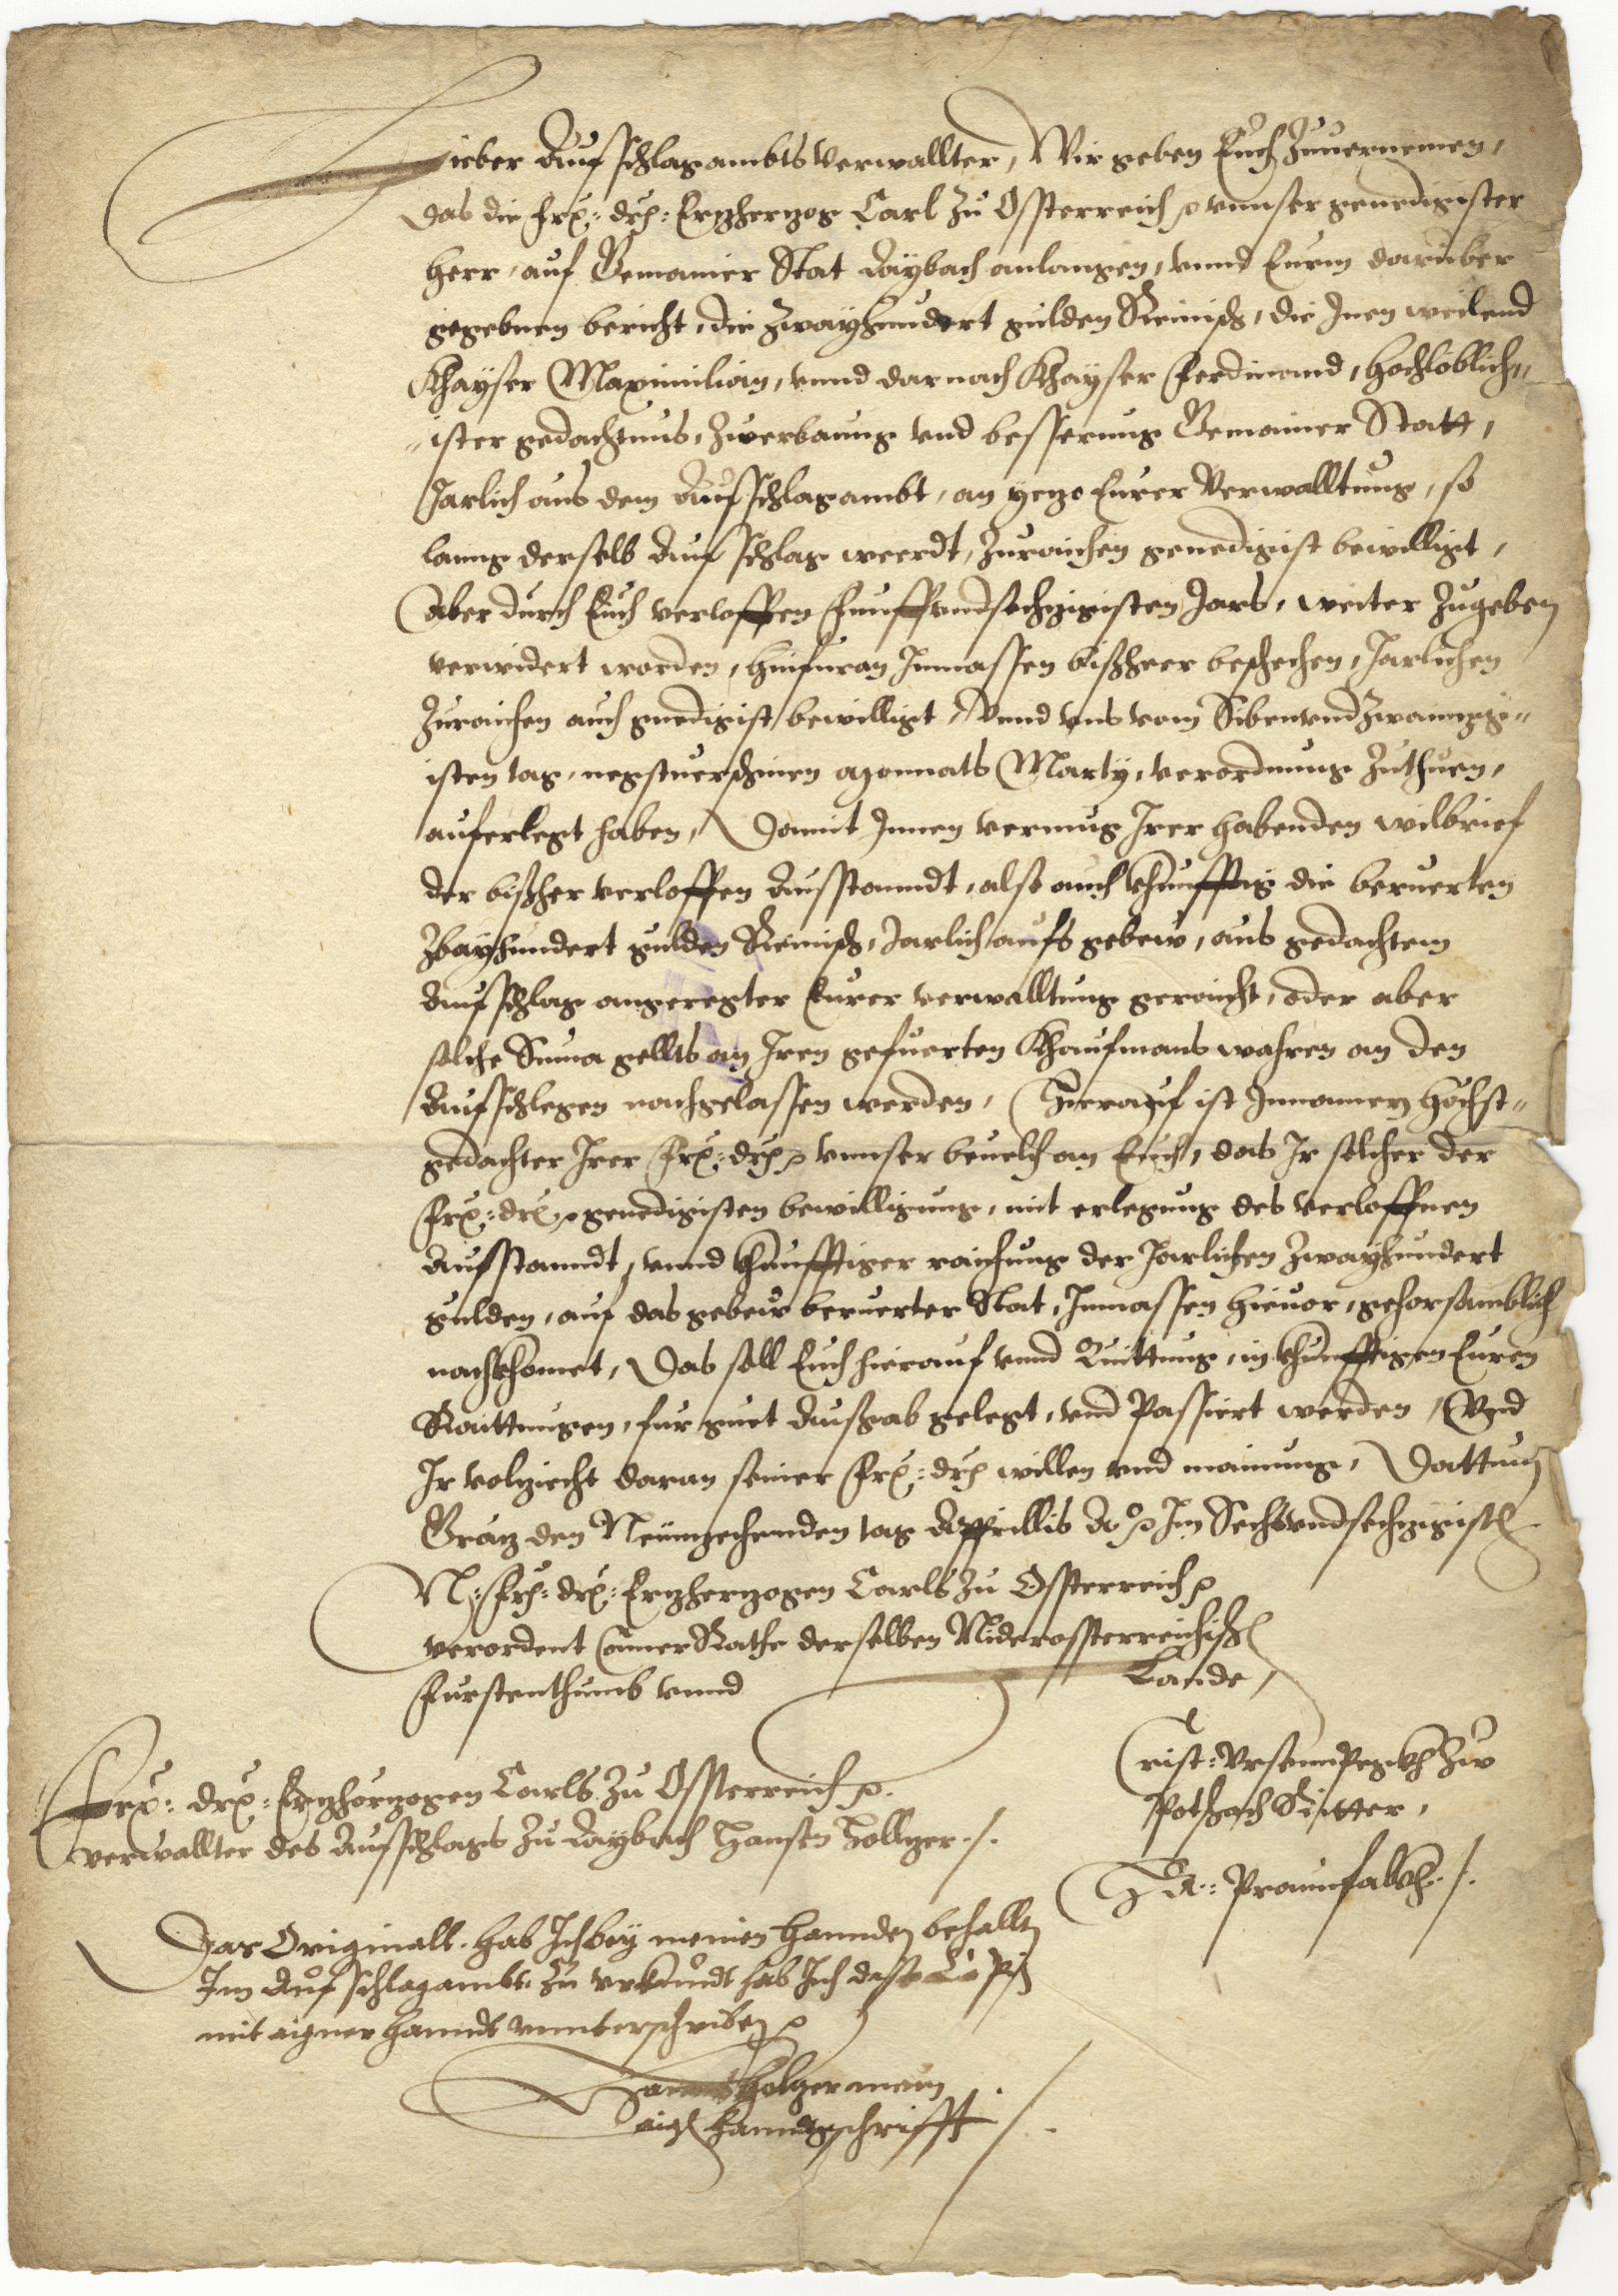 Lieber Aufschlagambts Verwallter, Wir geben Euch Zuuernemen,
das die Frl: drl: Ertzhertzog Carl zu Ossterreich ꝛc vnnser genedigister
Herr, auf Gemainer Stat Laybach anlangen, vnnd Eurm daruber
gegebnen bericht, die Zwayhundert gulden Reinisch, die Inen weilend
Khayser Maximilian, vnnd darnach Khayser Ferdinand, hochloblich=
=ister gedachtnus, Zuerbauung vnd besserung Gemainer Statt,
Jarlich aus dem Aufschlagambt, an yetzo Eurer Verwalltung, so
lanng derselb Aufschlag weerdt, Zuraichen genedigist bewilligt,
Aber durch Euch verloffen Funffvndsechzigisten Jars, weiter Zugeben
verwidert worden, hinfuran Inmassen bißheer beschechen, Jarlichen
Zuraichen auch gnedigist bewilligt, Vnnd vns vom Sibenvndzwaintzig=
isten tag, negstuerschinen Monnats Marty, verordnung Zuthuen,
auferlegt haben, Damit Innen vermug Irer habenden wilbrief
der bißher verloffen Ausstanndt, also auch khunfftig die beruerten
Zwayhundert gulden Reinisch, Jarlich aufs gebew, aus gedachtem
Aufschlag angeregter Eurer verwalltung geraicht, oder aber
solche Suma gellts an Iren gefuerten Khaufmans wahren an den
Aufschlegen nachgelassen werden, Hierauf ist Innamen höchst=
gedachter Irer Frl: drl: ꝛc vnnser beuelch an Euch, das Ir solcher der
Frl: drl: ꝛc genedigisten bewilligung, mit erlegung des verloffnen
Ausstanndt, vnnd khunfftiger raichung der Jarlichen Zwayhundert
gulden, auf das gebew beruerter Stat, Inmassen hieuor, gehorsamblich
nachkhomet, Das soll Euch hierauf vnnd Quittung, in khunfftigen Euren
Raittungen, fur guet Ausgab gelegt, vnd Passiert werden, Vnd
Ir volziecht daran seiner Frl: drl: willen vnd mainung, Dattum
Grätz den Neünzechenden tag Apprillis Ao ꝛc Im Sechsvndsechzigist
N: Frl: drl: Ertzhertzogen Carls zu Ossterreich ꝛc
verordent Camer Räthe derselben Niderossterreichisch
Furstenthumb vnnd Lande,
Crist: Vrsenpegkh Zu
Potschach Ritter,
Frl: drl: Ertzhertzogen Carls zu Ossterreich ꝛc.
verwallter des Aufschlags zu Laybach Hansen Hollzer ./.
H A: Praunfalkh ./.
Das Originall hab Ich bey meinen Hannden behallten
Im Aufschlagambt. Zu vrkundt hab Ich dise
mit aigner Hanndt vnnterschriben ꝛc
Hanns Holzer mein
aigen Hanndtschrifft ./.